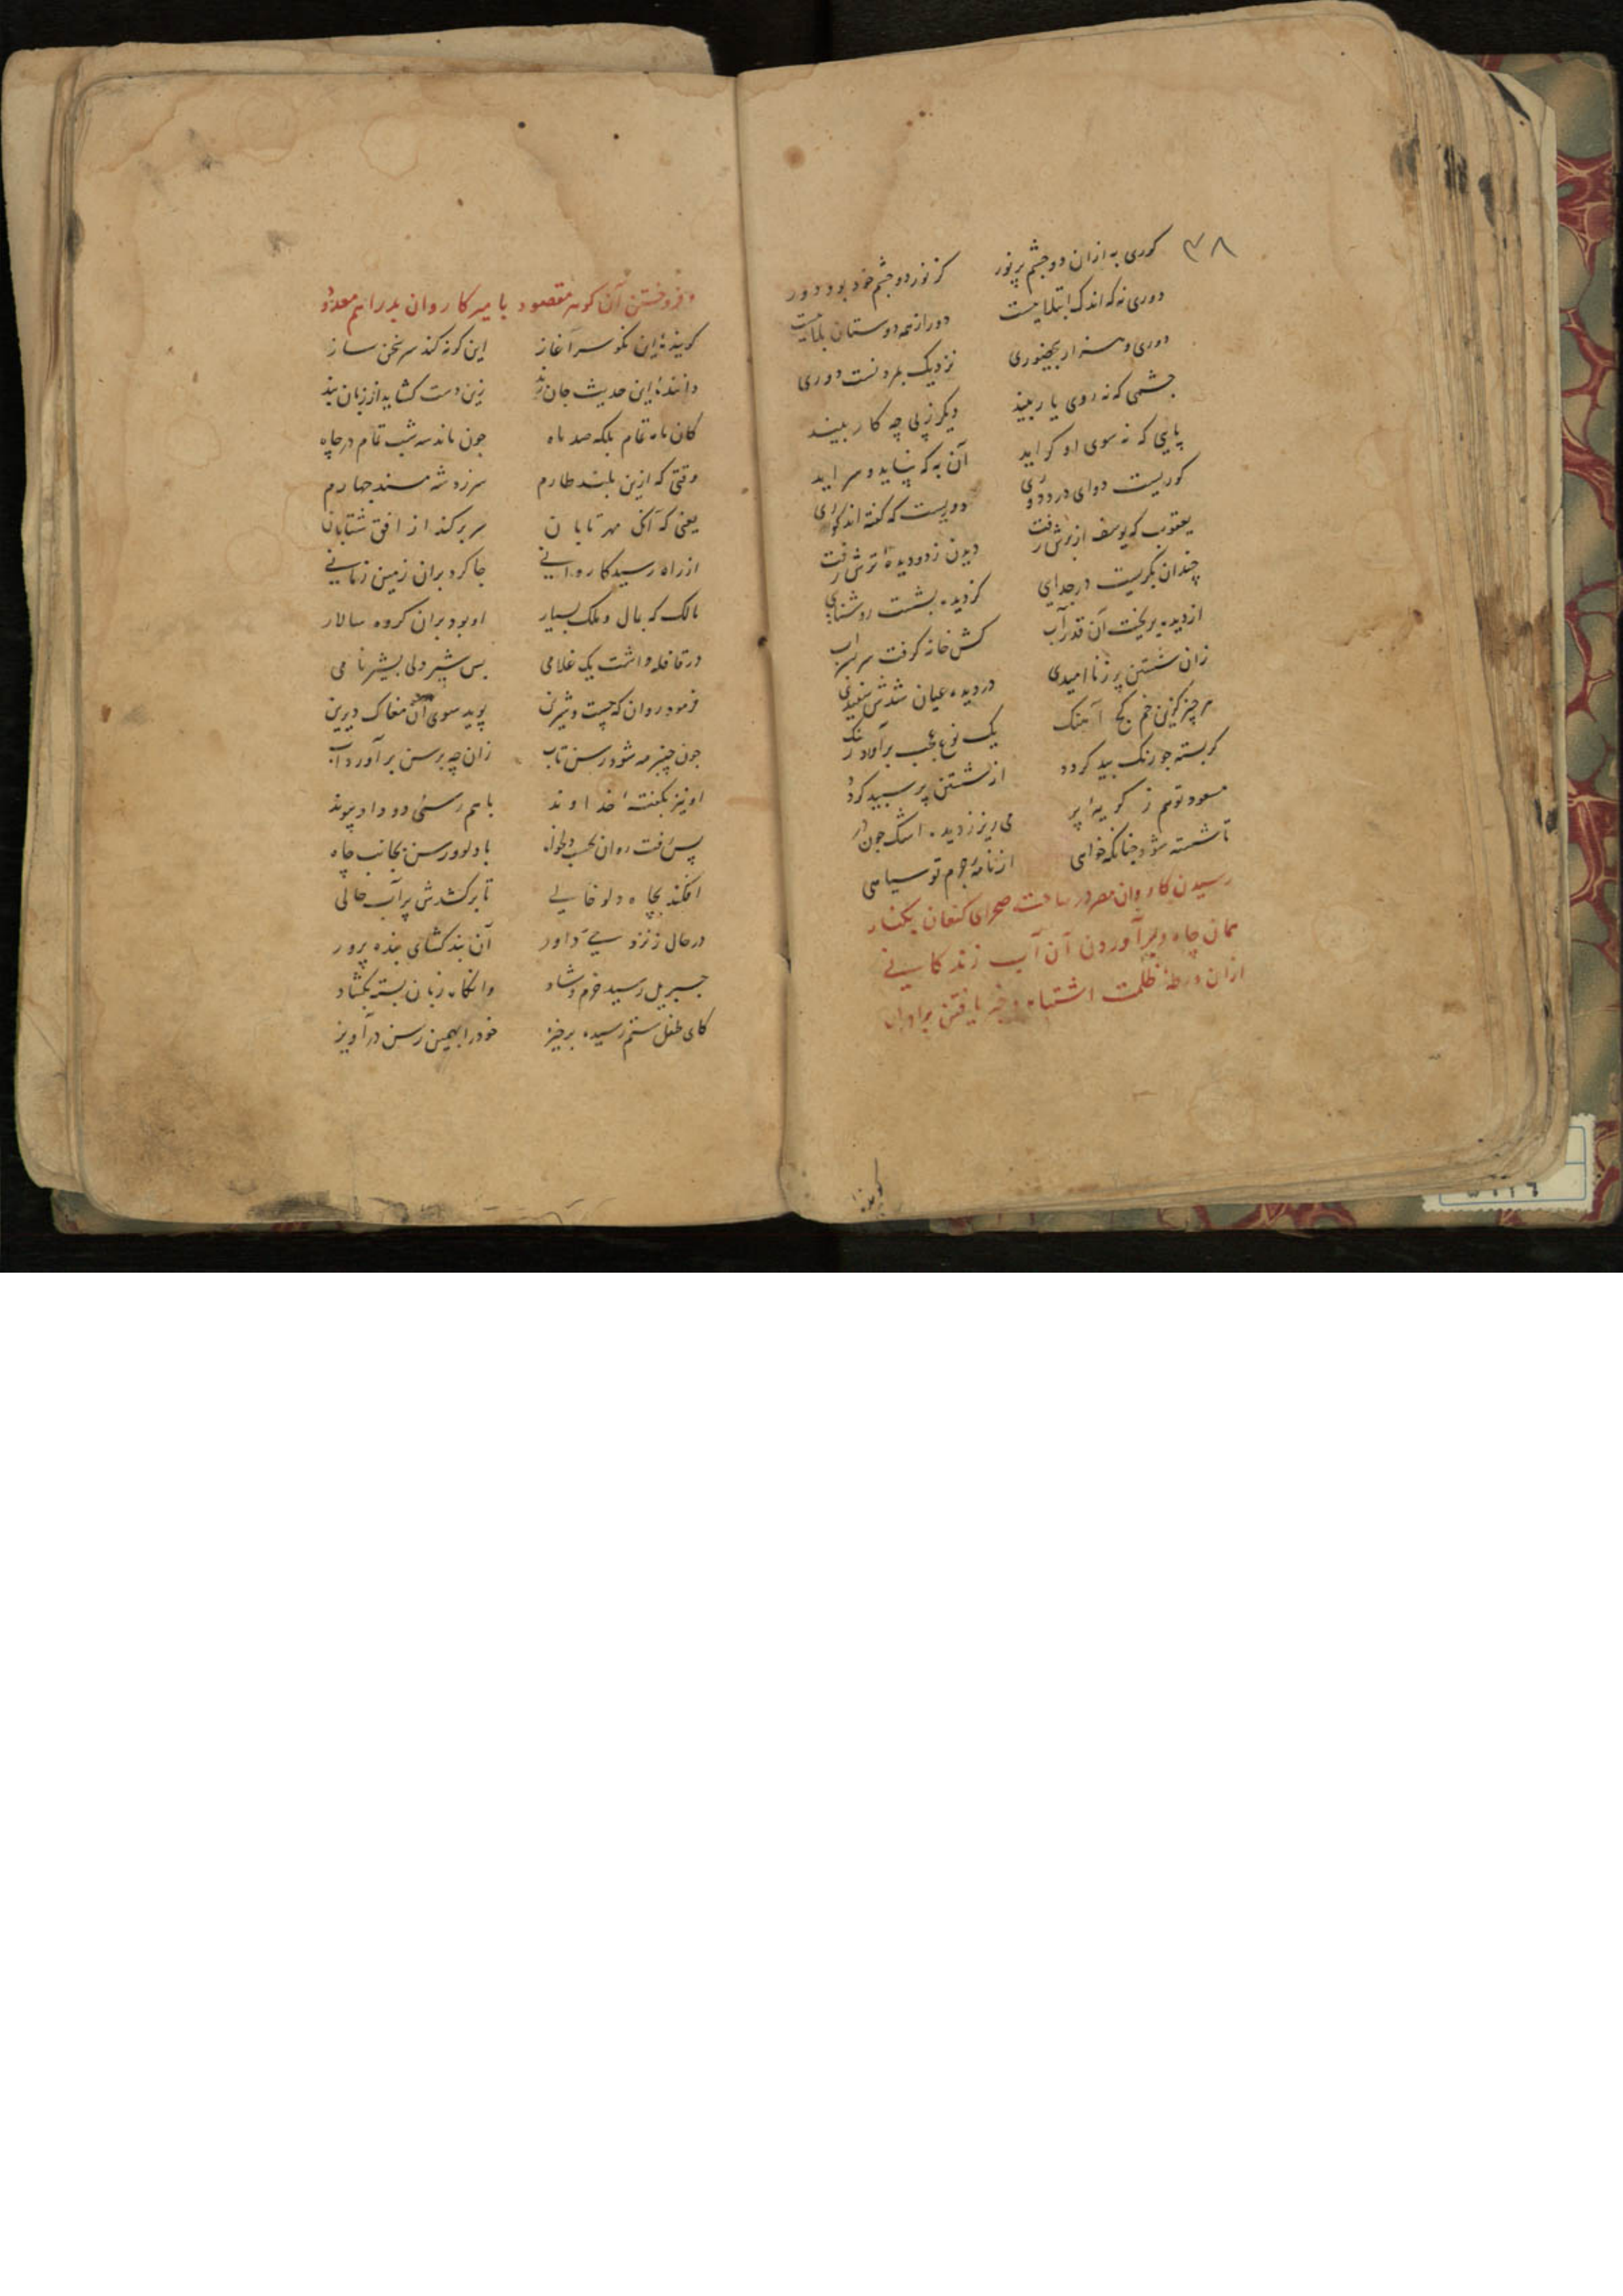 ۳۸
کوری به ازان دو چشم پر نور کز نور دو چشم خود بود دور
دوری نه که اندک ابتلاییست دور از همه دوستان بلاییست
دوری و هزار بی حضوری نزدیک بمردنست دوری
چشمی که نه روی یار بیند دیگر ز پی چه کار بیند
پایی که نه سوی او گراید آن به که بپاید و سر آید
کوریست دوای درد دوری دوریست که گفته اند کوری
یعقوب که یوسف از برش رفت دیدن ز دو دیده ترش رفت
چندان بگریست در جدایی کز دیده بشست روشنایی
از دیده بریخت آن قدر آب کش خانه گرفت سر بسر آب
زان شستن پر ز ناامیدی در دیده عیان شدش سفیدی
هر چیز کزین خم کج آهنگ یک نوع عجب برآورد رنگ
کر بسته چو زنگ بید گردد از شستن پر سپید گردد
مسعود تو هم ز گریهٔ پر می ریز ز دیده اشک چون در
تا شسته شود چنانکه خواهی از نامهٔ جرم تو سیاهی
رسیدن کاروان مصر در ساحت صحرای کنعان بکنار
همان چاه و برآوردن آن آب زندکانی
ازان ورطهٔ ظلمت اشتباه و خبر یافتن برادران
و فروختن آن گوهر مقصود با میر کاروان بدراهم معدود
گویندهٔ این نکو سرآغاز این گونه کند سر سخن ساز
دانندهٔ این حدیث جان زین دست گشاید از زبان بند
کان ماه تمام بلکه صد ماه چون ماند سه شب تمام در چاه
وقتی که ازین بلند طارم سر زد شه مسند چهارم
یعنی که آن مهر تابان سر بر کند از افق شتابان
از راه رسید کاروانی جا کرد بران زمین زمانی
مالک که بمال و ملک بسیار او بود بران گروه سالار
در قافله داشت یک غلامی بس شیر ولی بشیر نامی
فرمود روان که چست و شیرین پوید سوی آن مغاک دیرین
چون چنبر مه شود رسن تاب زان چه برسن برآورد آب
او نیز بگفتهٔ خداوند با هم رسنی دو داد پیوند
پس رفت روان بحسب دلخواه با دلو و رسن بجانب چاه
افکند بچاه دلو خالی تا برکشدش پر آب حالی
در حال ز نزد حی داور آن بند گشای بنده پرور
جبریل رسید خرم و شاد وانگاه زبان بسته بگشاد
کای طفل ستم رسیده برخیز خود را بهمین رسن درآویز
گوینده